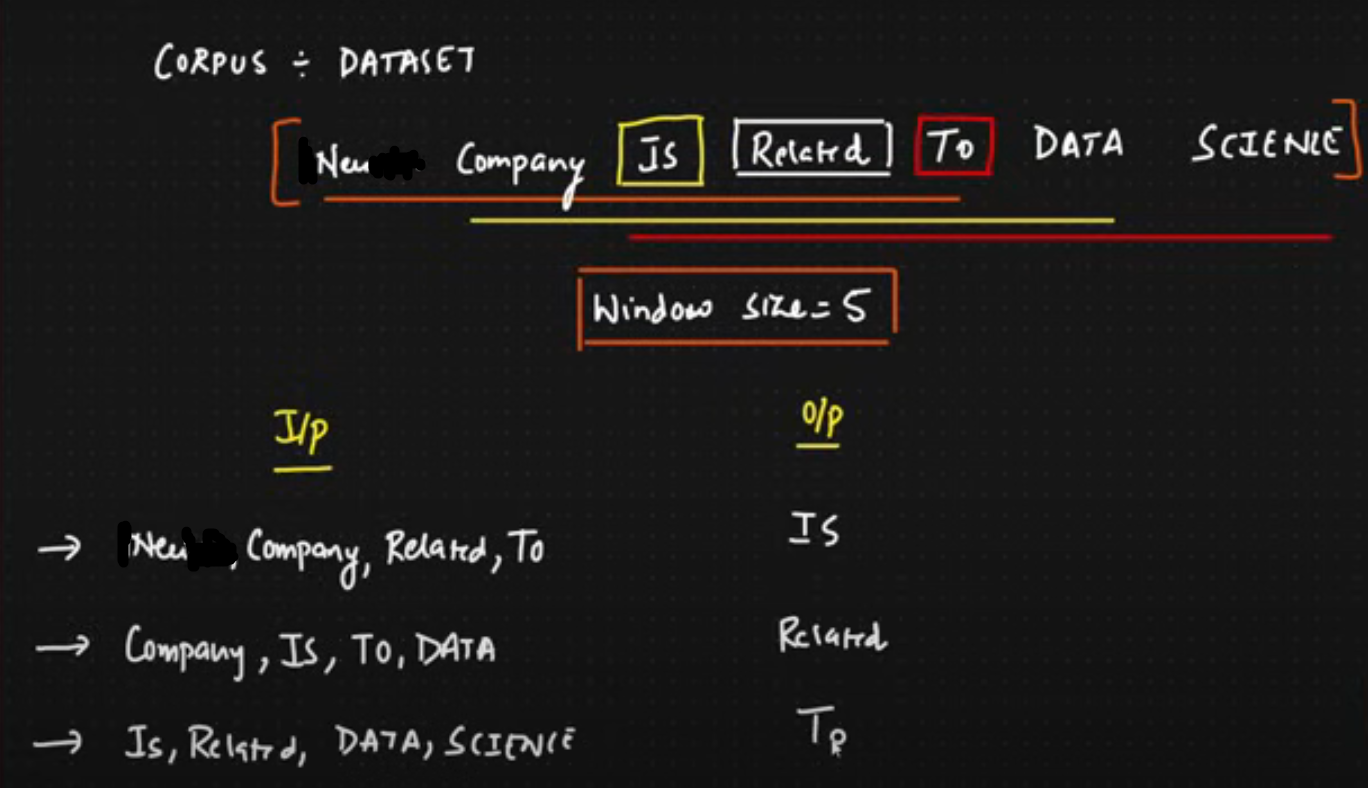 CORPUS ÷ DATASET
[ New Company IS Related To DATA SCIENCE ]
Window size = 5
I/p O/p
→ New, Company, Related, To IS
→ Company, IS, TO, DATA Related
→ Is, Related, DATA, SCIENCE To